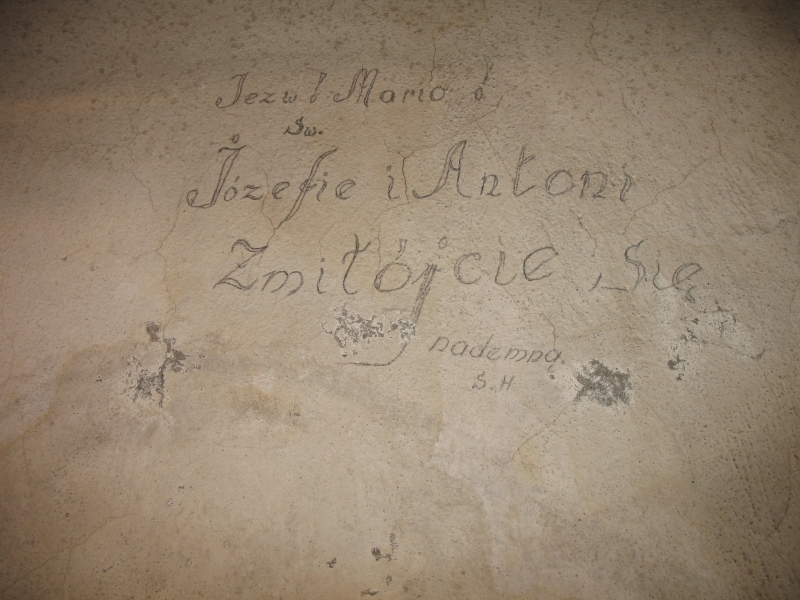 Jezu ó Mario ó
Św.
Józefie i Antoni
Zmiłójcie Się
nademną.
S.H